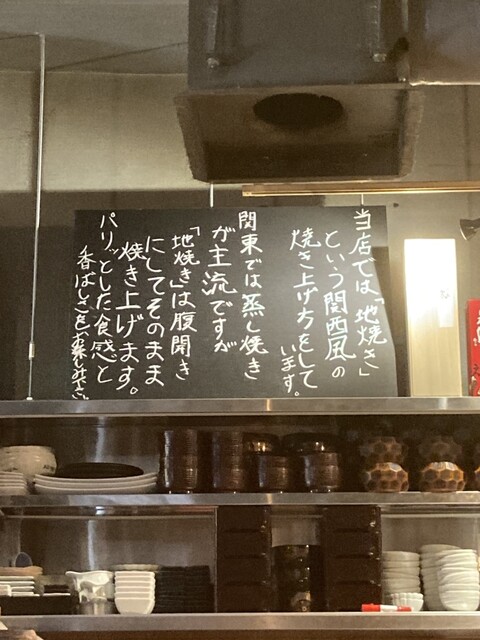 当店では「地焼き」
という関西風の
焼き上げ方をして
います。
関東では蒸し焼き
が主流ですが
「地焼き」は腹開き
にしてそのまま
焼き上げます。
パリッとした食感と
香ばしさをお楽しみ下さい